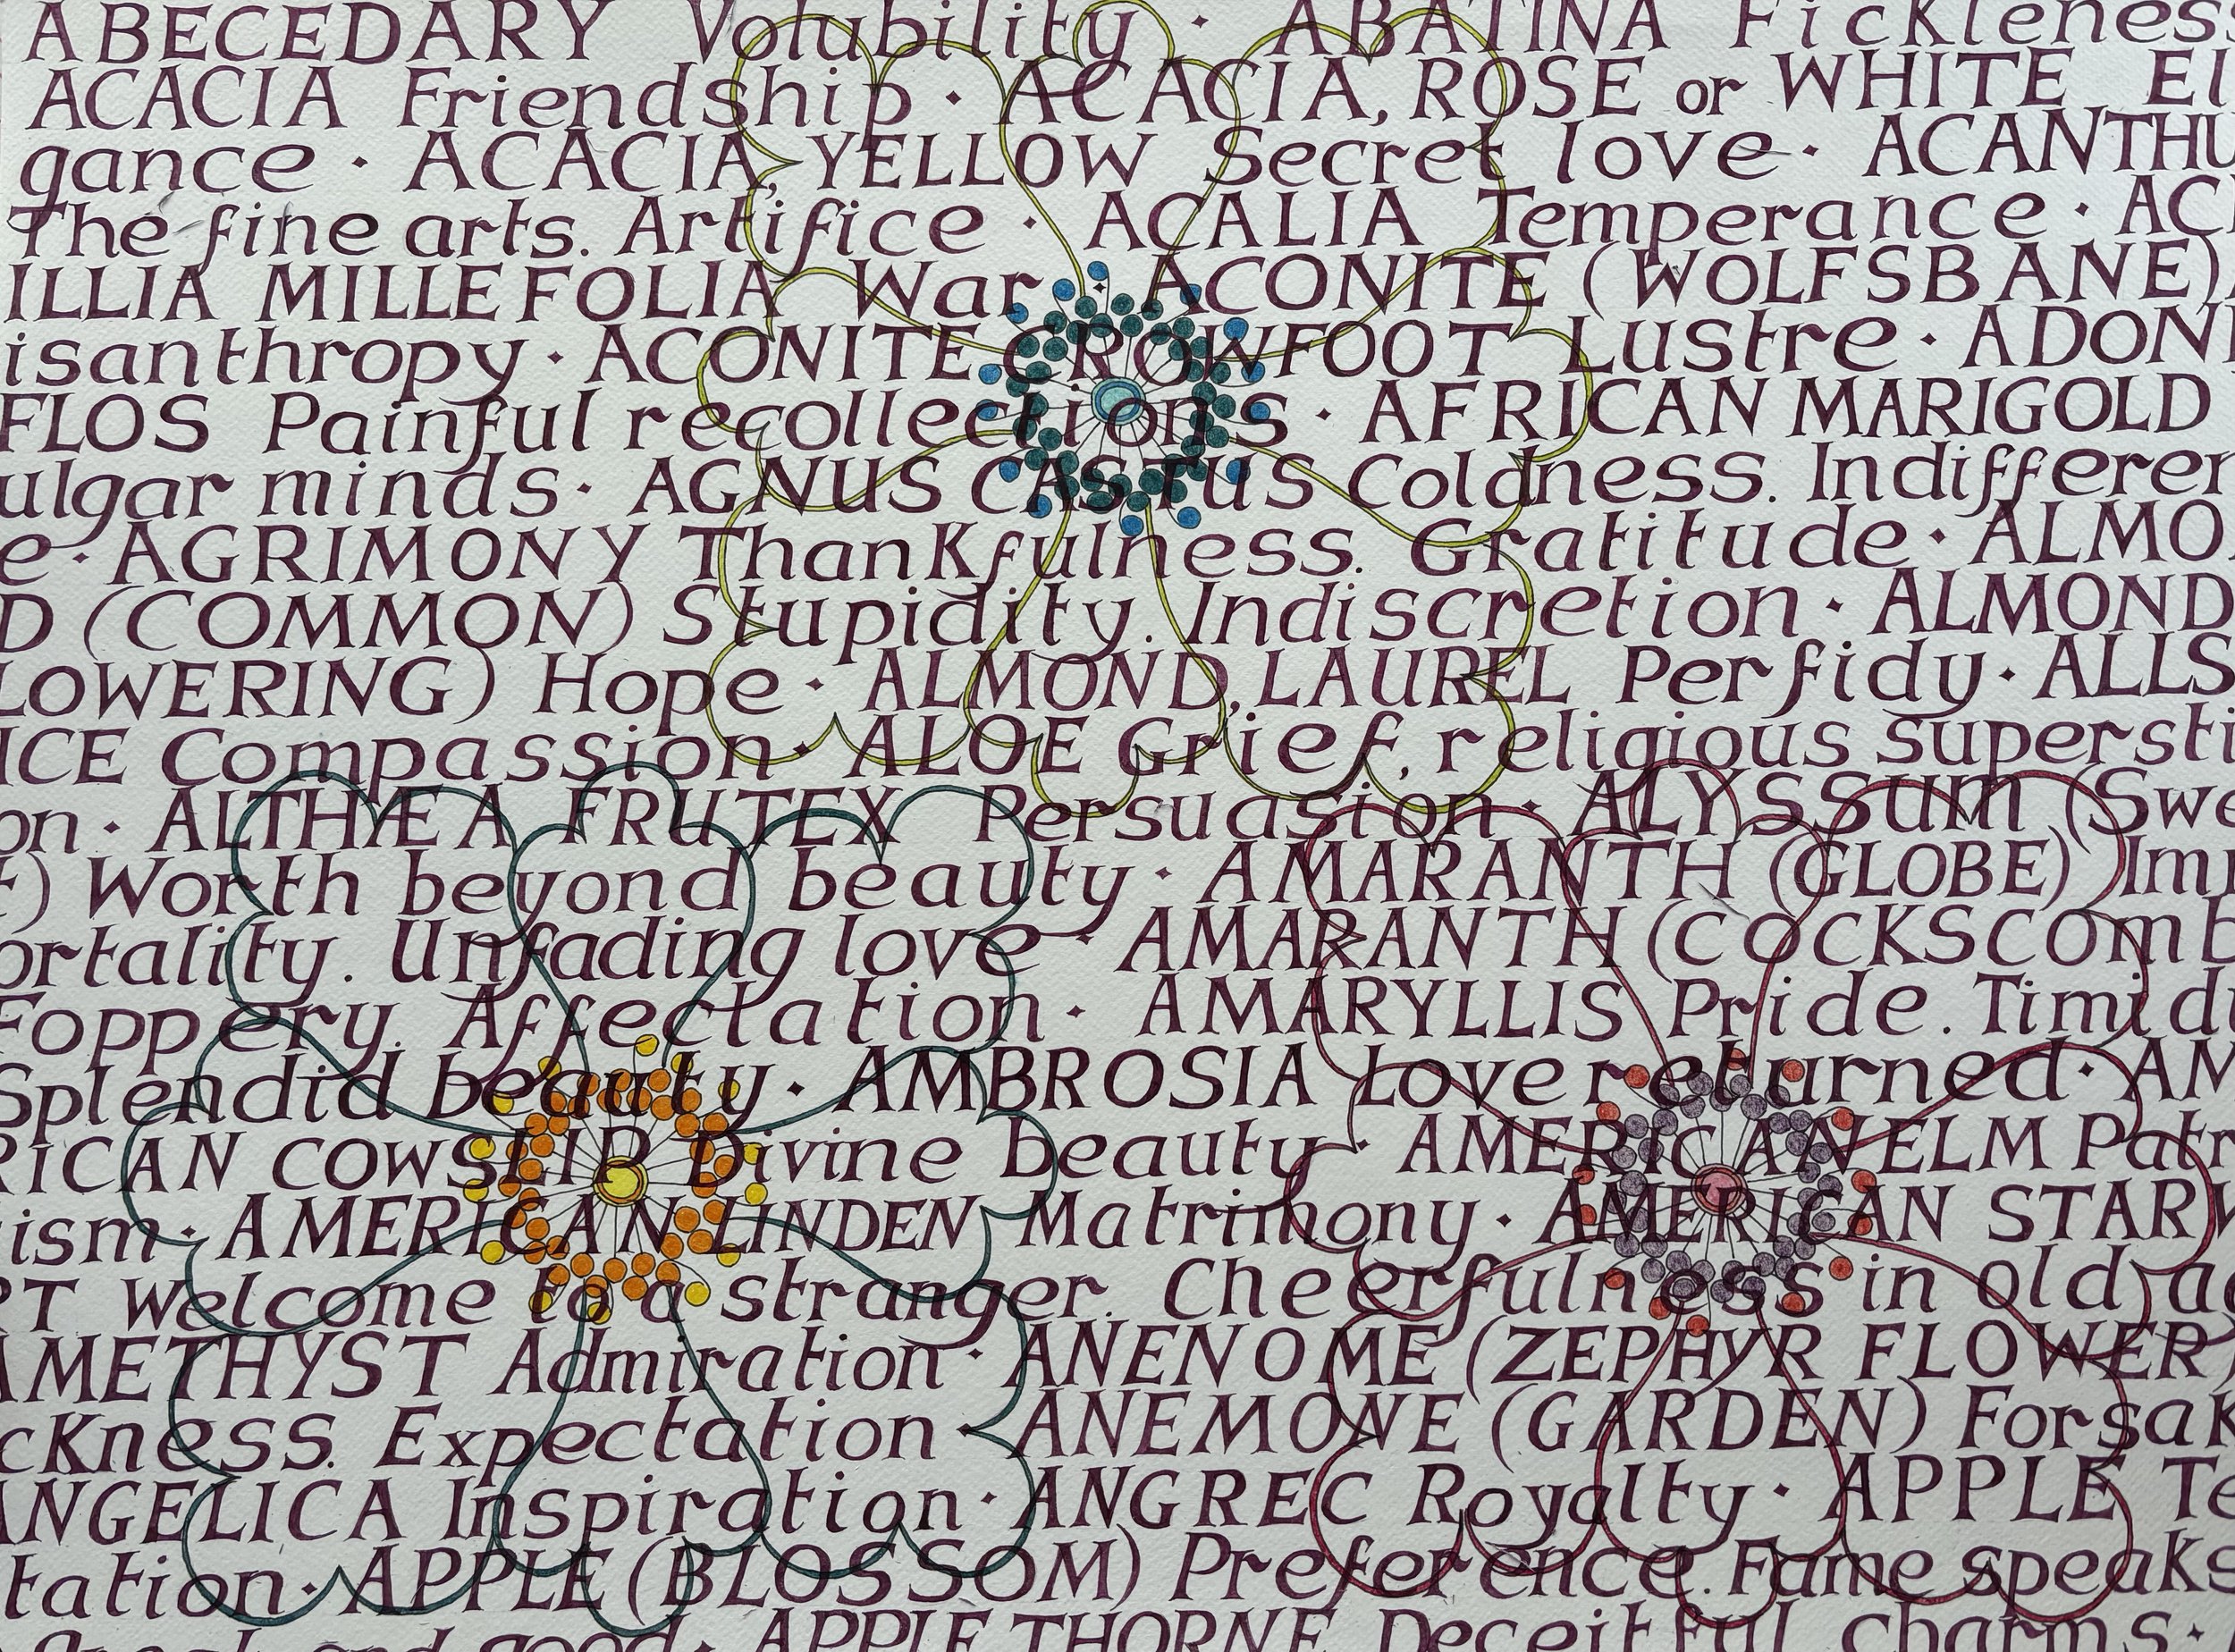 ABECEDARY Volubility · ABATINA Fickleness
ACACIA Friendship · ACACIA, ROSE or WHITE El
gance · ACACIA, YELLOW Secret love · ACANTHU
The fine arts. Artifice · ACALIA Temperance · AC
ILLIA MILLEFOLIA War · ACONITE (WOLFSBANE)
isanthropy · ACONITE CROWFOOT Lustre · ADONI
FLOS Painful recollections · AFRICAN MARIGOLD
ulgar minds · AGNUS CASTUS Coldness. Indifferen
e · AGRIMONY Thankfulness. Gratitude · ALMO
D (COMMON) Stupidity. Indiscretion · ALMOND
LOWERING) Hope · ALMOND, LAUREL Perfidy · ALLS
ICE Compassion · ALOE Grief, religious supersti
on · ALTHÆA FRUTEX Persuasion · ALYSSUM (Swe
t) Worth beyond beauty · AMARANTH (GLOBE) Imm
ortality. Unfading love · AMARANTH (COCKSCOmb
Foppery. Affectation · AMARYLLIS Pride. Timidi
Splendid beauty · AMBROSIA Love returned · AM
RICAN COWSLIP Divine beauty · AMERICAN ELM Patr
ism · AMERICAN LINDEN Matrimony · AMERICAN STARW
RT Welcome to a stranger. Cheerfulness in old ag
AMETHYST Admiration · ANENOME (ZEPHYR FLOWER)
ckness. Expectation · ANEMONE (GARDEN) Forsak
ANGELICA Inspiration · ANGREC Royalty · APPLE Te
tation · APPLE (BLOSSOM) Preference. Fame speaks
great and good · APPLE THORNE Deceitful charms ·